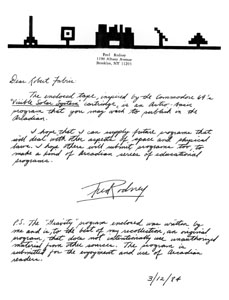 Paul Rodney
1390 Albany Avenue
Brooklyn, NY 11203
Dear Robert Fabris
The enclosed tape, inspired by the Commodore 64's
"Visible Solar System" cartridge, is an Astro-basic
program that you may wish to publish in the
Arcadian.
I hope that I can supply future programs that
will deal with other aspects of space and physical
laws. I hope others will submit programs too, to
make a kind of Arcadian series of educational
programs.
P.S. The "Gravity" program enclosed was written by
me and is, to the best of my recollection, an original
program, that does not intentionally use unauthorized
material from other sources. The program is
submitted for the enjoyment and use of Arcadian
readers.
3/12/84